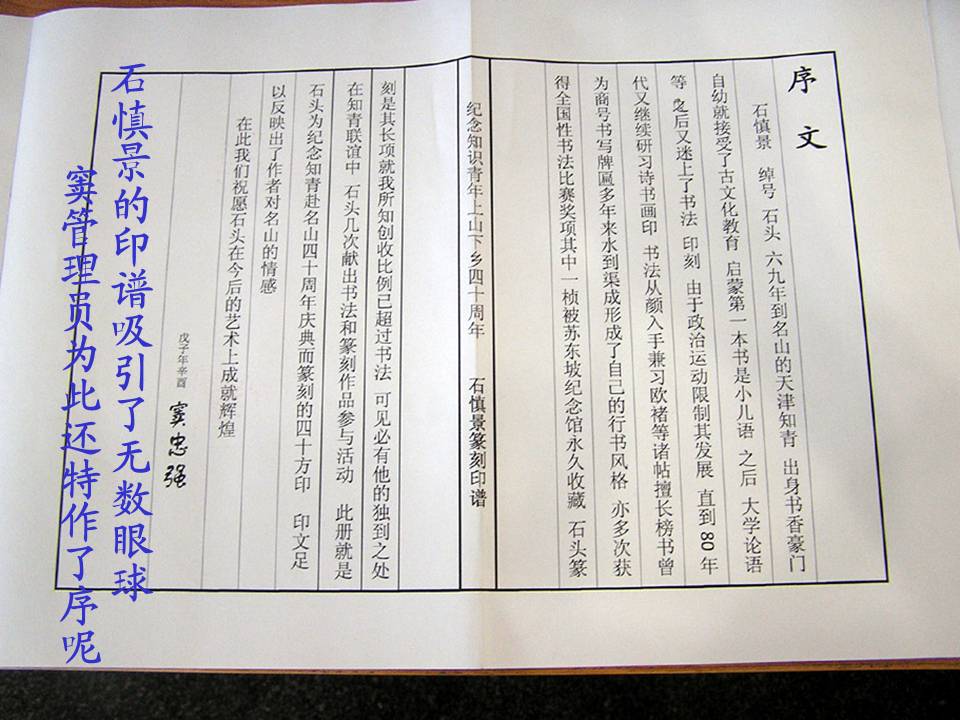 序文
石慎景 绰号 石头 六九年到名山的天津知青 出身书香豪门
自幼就接受了古文化教育 启蒙第一本书是小儿语 之后 大学论语
等 之后又迷上了书法 印刻 由于政治运动限制其发展 直到80年
代又继续研习诗书画印 书法从颜入手兼习欧褚等诸帖擅长榜书曾
为商号书写牌匾多年来水到渠成形成了自己的行书风格 亦多次获
得全国性书法比赛奖项其中一桢被苏东坡纪念馆永久收藏 石头篆
纪念知识青年上山下乡四十周年 石慎景篆刻印谱
刻是其长项就我所知创收比例已超过书法 可见必有他的独到之处
在知青联谊中 石头几次献出书法和篆刻作品参与活动 此册就是
石头为纪念知青赴名山四十周年庆典而篆刻的四十方印 印文足
以反映出了作者对名山的情感
在此我们祝愿石头在今后的艺术上成就辉煌
戊子年辛酉 窦忠强
石慎景的印谱吸引了无数眼球
窦管理员为此还特作了序呢